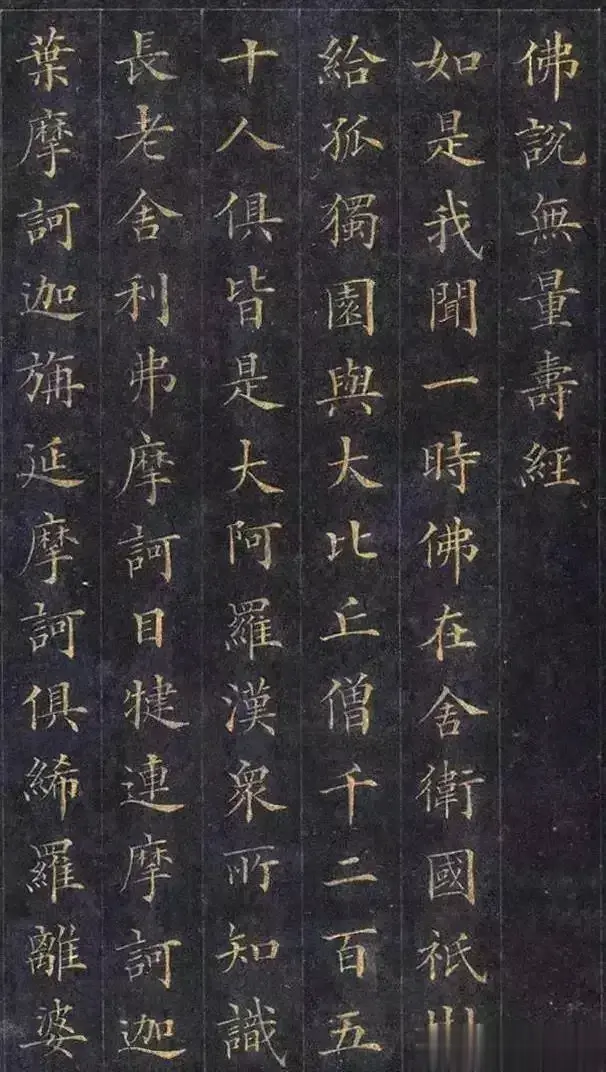 佛說無量壽經
如是我聞一時佛在舍衛國祇
給孤獨園與大比丘僧千二百五
十人俱皆是大阿羅漢衆所知識
長老舍利弗摩訶目犍連摩訶迦
葉摩訶迦旃延摩訶俱絺羅離婆